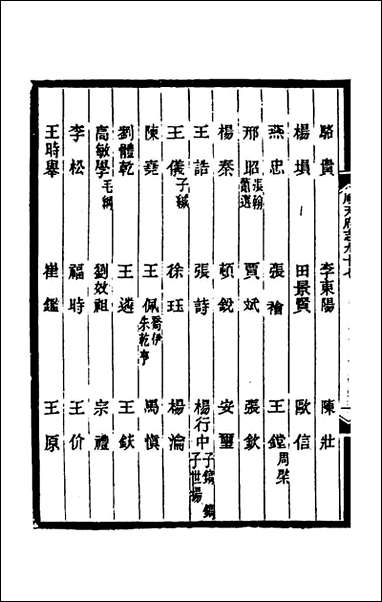 駱貴 李東陽 陳壯
楊塤 田景賢 歐信
燕忠 張禬 王鏜周棨
邢昭張翰蕭選 賈斌 張欽
楊秦 頓銳 安璽
王誥 張詩 楊行中子世揚
王儀子緘 徐珏 楊淪
陳堯 王佩喬伊朱乾亨 馬慎
劉體乾 王遴 王鈇
高敏學毛綱 劉效祖 宗禮
李松 福時 王价
王時舉 崔鑑 王原